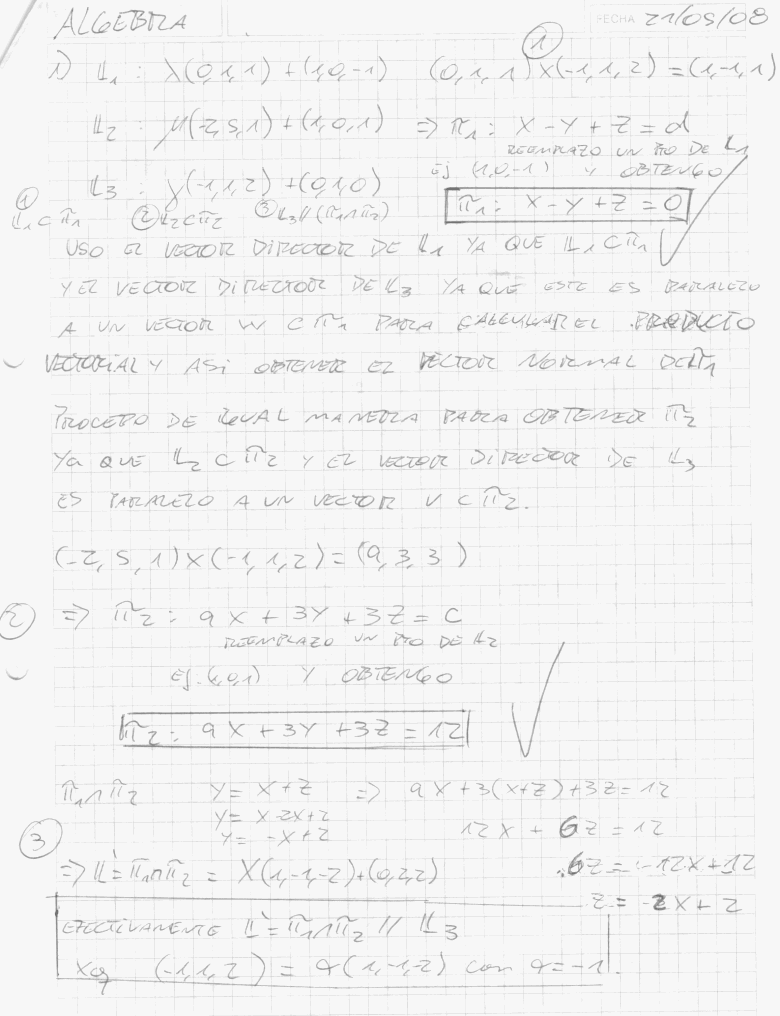 ALGEBRA FECHA 21/05/08
1) L₁ : λ(0,1,1) + (1,0,-1) ① (0,1,1)×(-1,1,2) = (1,-1,1)
L₂ : μ(-2,5,1) + (1,0,1) => π₁ : X - Y + Z = d
REEMPLAZO UN PTO DE L₁
Ej (1,0,-1) Y OBTENGO
L₃ : γ(-1,1,2) + (0,1,0) π₁ : X - Y + Z = 0
① L₁ ⊂ π₁ ② L₂ ⊂ π₂ ③ L₃ // (π₁∩π₂)
USO EL VECTOR DIRECTOR DE L₁ YA QUE L₁ ⊂ π₁
Y EL VECTOR DIRECTOR DE L₃ YA QUE ESTE ES PARALELO
A UN VECTOR W ⊂ π₁ PARA CALCULAR EL PRODUCTO
VECTORIAL Y ASI OBTENER EL VECTOR NORMAL DE π₁
PROCEDO DE IGUAL MANERA PARA OBTENER π₂
YA QUE L₂ ⊂ π₂ Y EL VECTOR DIRECTOR DE L₃
ES PARALELO A UN VECTOR V ⊂ π₂.
(-2,5,1)×(-1,1,2) = (9,3,3)
② => π₂ : 9X + 3Y + 3Z = C
REEMPLAZO UN PTO DE L₂
Ej. (1,0,1) Y OBTENGO
π₂ : 9X + 3Y + 3Z = 12
π₁∩π₂ Y = X+Z => 9X + 3(X+Z) + 3Z = 12
Y = X-2X+2
Y = -X+2 12X + 6Z = 12
③ => L' = π₁∩π₂ = X(1,-1,-2)+(0,2,2) 6Z = -12X+12
Z = -2X + 2
EFECTIVAMENTE L' = π₁∩π₂ // L₃
Xq (-1,1,2) = α(1,-1,-2) con α = -1.